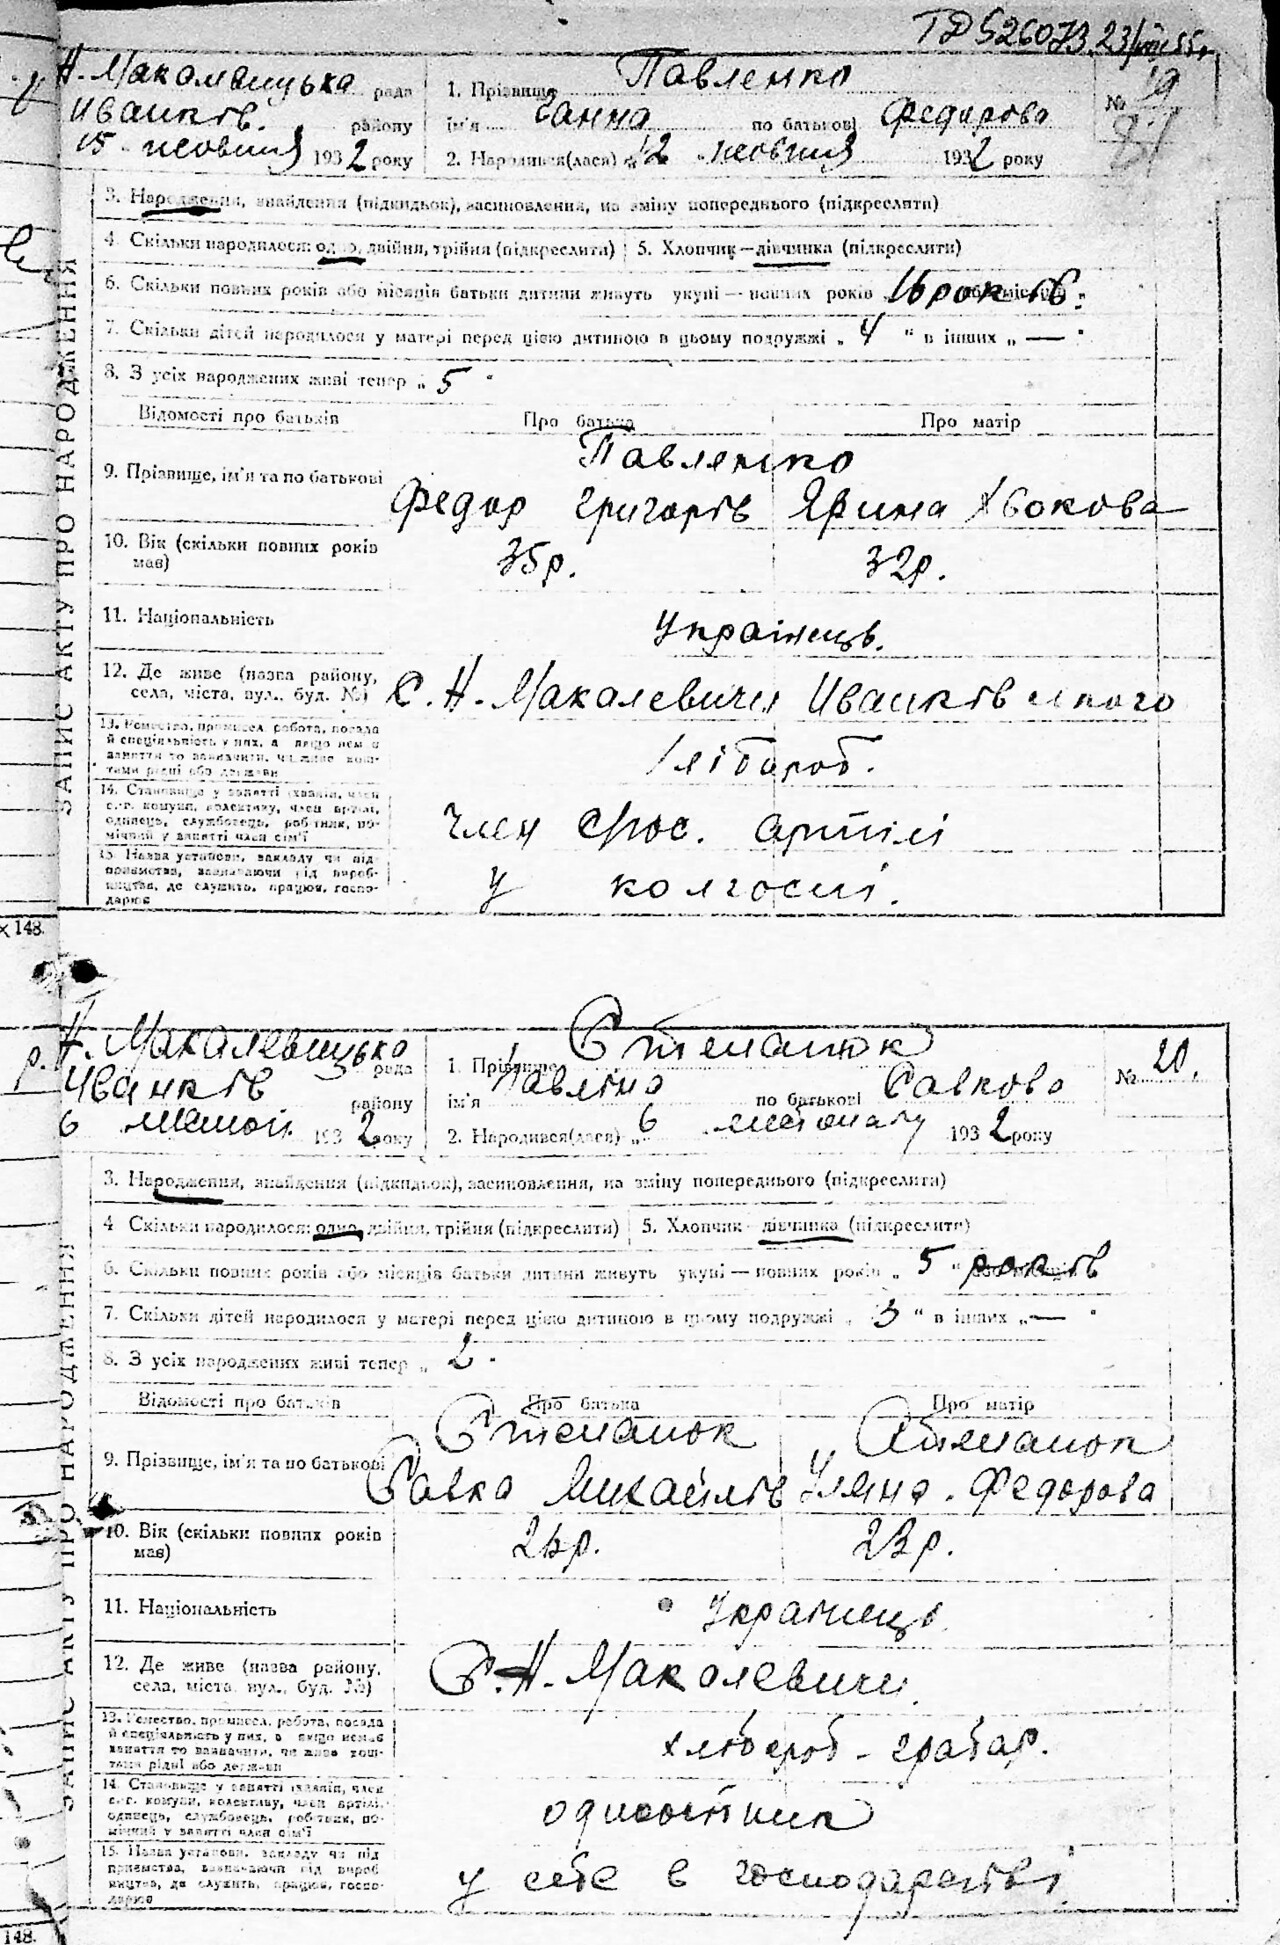 ТД 526073 23/VIII 55 р
Н. Макалевицька рада
Иванків. району
15 жовтня 1932 року
1. Прізвище Павленко
ім'я Ганна по батькові Федорова
2. Народився(лася) „12 „ жовтня 1932 року
№ 19
ЗАПИС АКТУ ПРО НАРОДЖЕННЯ
3. Народження, знайдення (підкидьок), засиновлення, на зміну попереднього (підкреслити)
4. Скільки народилося: одно, двійня, трійня (підкреслити) 5. Хлопчик—дівчинка (підкреслити)
6. Скільки повних років або місяців батьки дитини живуть укупі — повних років 16 років.
7. Скільки дітей народилося у матері перед цією дитиною в цьому подружжі „ 4 " в інших „ — "
8. З усіх народжених живі тепер „ 5 "
Відомості про батьків Про батька Про матір
9. Прізвище, ім'я та по батькові
Павленко
Федор Григорів Ярина Хвокова
10. Вік (скільки повних років має) 35р. 32р.
11. Національність українець.
12. Де живе (назва району, села, міста, вул., буд. №) С. Н. Макалевичи Иванківського
13. Ремество, промисел, робота, посада й спеціяльність у них, а якщо немає заняття то зазначити, чи живе коштами рідні або держави
хлібороб.
14. Становище у занятті (хазяїн, член с.-г. комуни, колективу, член артілі, одинець, службовець, робітник, помічний у занятті член сім'ї
член артілі
15. Назва установи, закладу чи підприємства, зазначаючи рід виробництва, де служить, працює, господарює
у колгоспі.
х 148.
Н. Макалевицька рада
Иванків району
6 1932 року
1. Прізвище Степанюк
ім'я Павліна по батькові Савкова
2. Народився(лася) „ 6 листопаду 1932 року
№ 20.
ЗАПИС АКТУ ПРО НАРОДЖЕННЯ
3. Народження, знайдення (підкидьок), засиновлення, на зміну попереднього (підкреслити)
4 Скільки народилося: одно, двійня, трійня (підкреслити) 5. Хлопчик—дівчинка (підкреслити)
6. Скільки повних років або місяців батьки дитини живуть укупі — повних років „ 5 " років
7. Скільки дітей народилося у матері перед цією дитиною в цьому подружжі „ 3 " в інших „ — "
8. З усіх народжених живі тепер „ 2 "
Відомості про батьків Про батька Про матір
Степанюк Степанюк
9. Прізвище, ім'я та по батькові
Савка Михайлів Уляна Федорова
10. Вік (скільки повних років має) 26р. 23р.
11. Національність Українець
12. Де живе (назва району, села, міста вул., буд. №) С. Н. Макалевичи.
13. Ремество, промисел, робота, посада й спеціяльність у них, а якщо немає заняття то зазначити, чи живе коштами рідні або держави
хлібороб - грабар.
14. Становище у занятті (хазяїн, член с.-г. комуни, колективу, член артілі, одинець, службовець, робітник, помічний у занятті член сім'ї
одноосібник
15. Назва установи, закладу чи підприємства, зазначаючи рід виробництва, де служить, працює, господарює
у себе в господарстві
148.